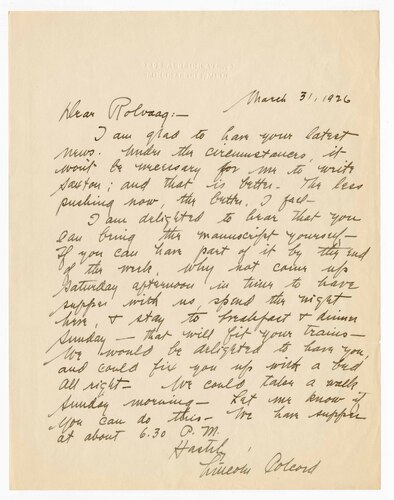 March 31, 1926
Dear Rolvaag:—
I am glad to have your latest
news. Under the circumstances, it
won't be necessary for me to write
Saxton; and that is better. The less
pushing now, the better, I feel—
I am delighted to hear that you
can bring the manuscript yourself—
If you can have part of it by the end
of the week, why not come up
Saturday afternoon in time to have
supper with us, spend the night
here, & stay to breakfast & dinner
Sunday — that will fit your trains—
We would be delighted to have you,
and could fix you up with a bed
all right— We could take a walk
Sunday morning— Let me know if
you can do this— We have supper
at about 6.30 P.M.
Hastily,
Lincoln Colcord